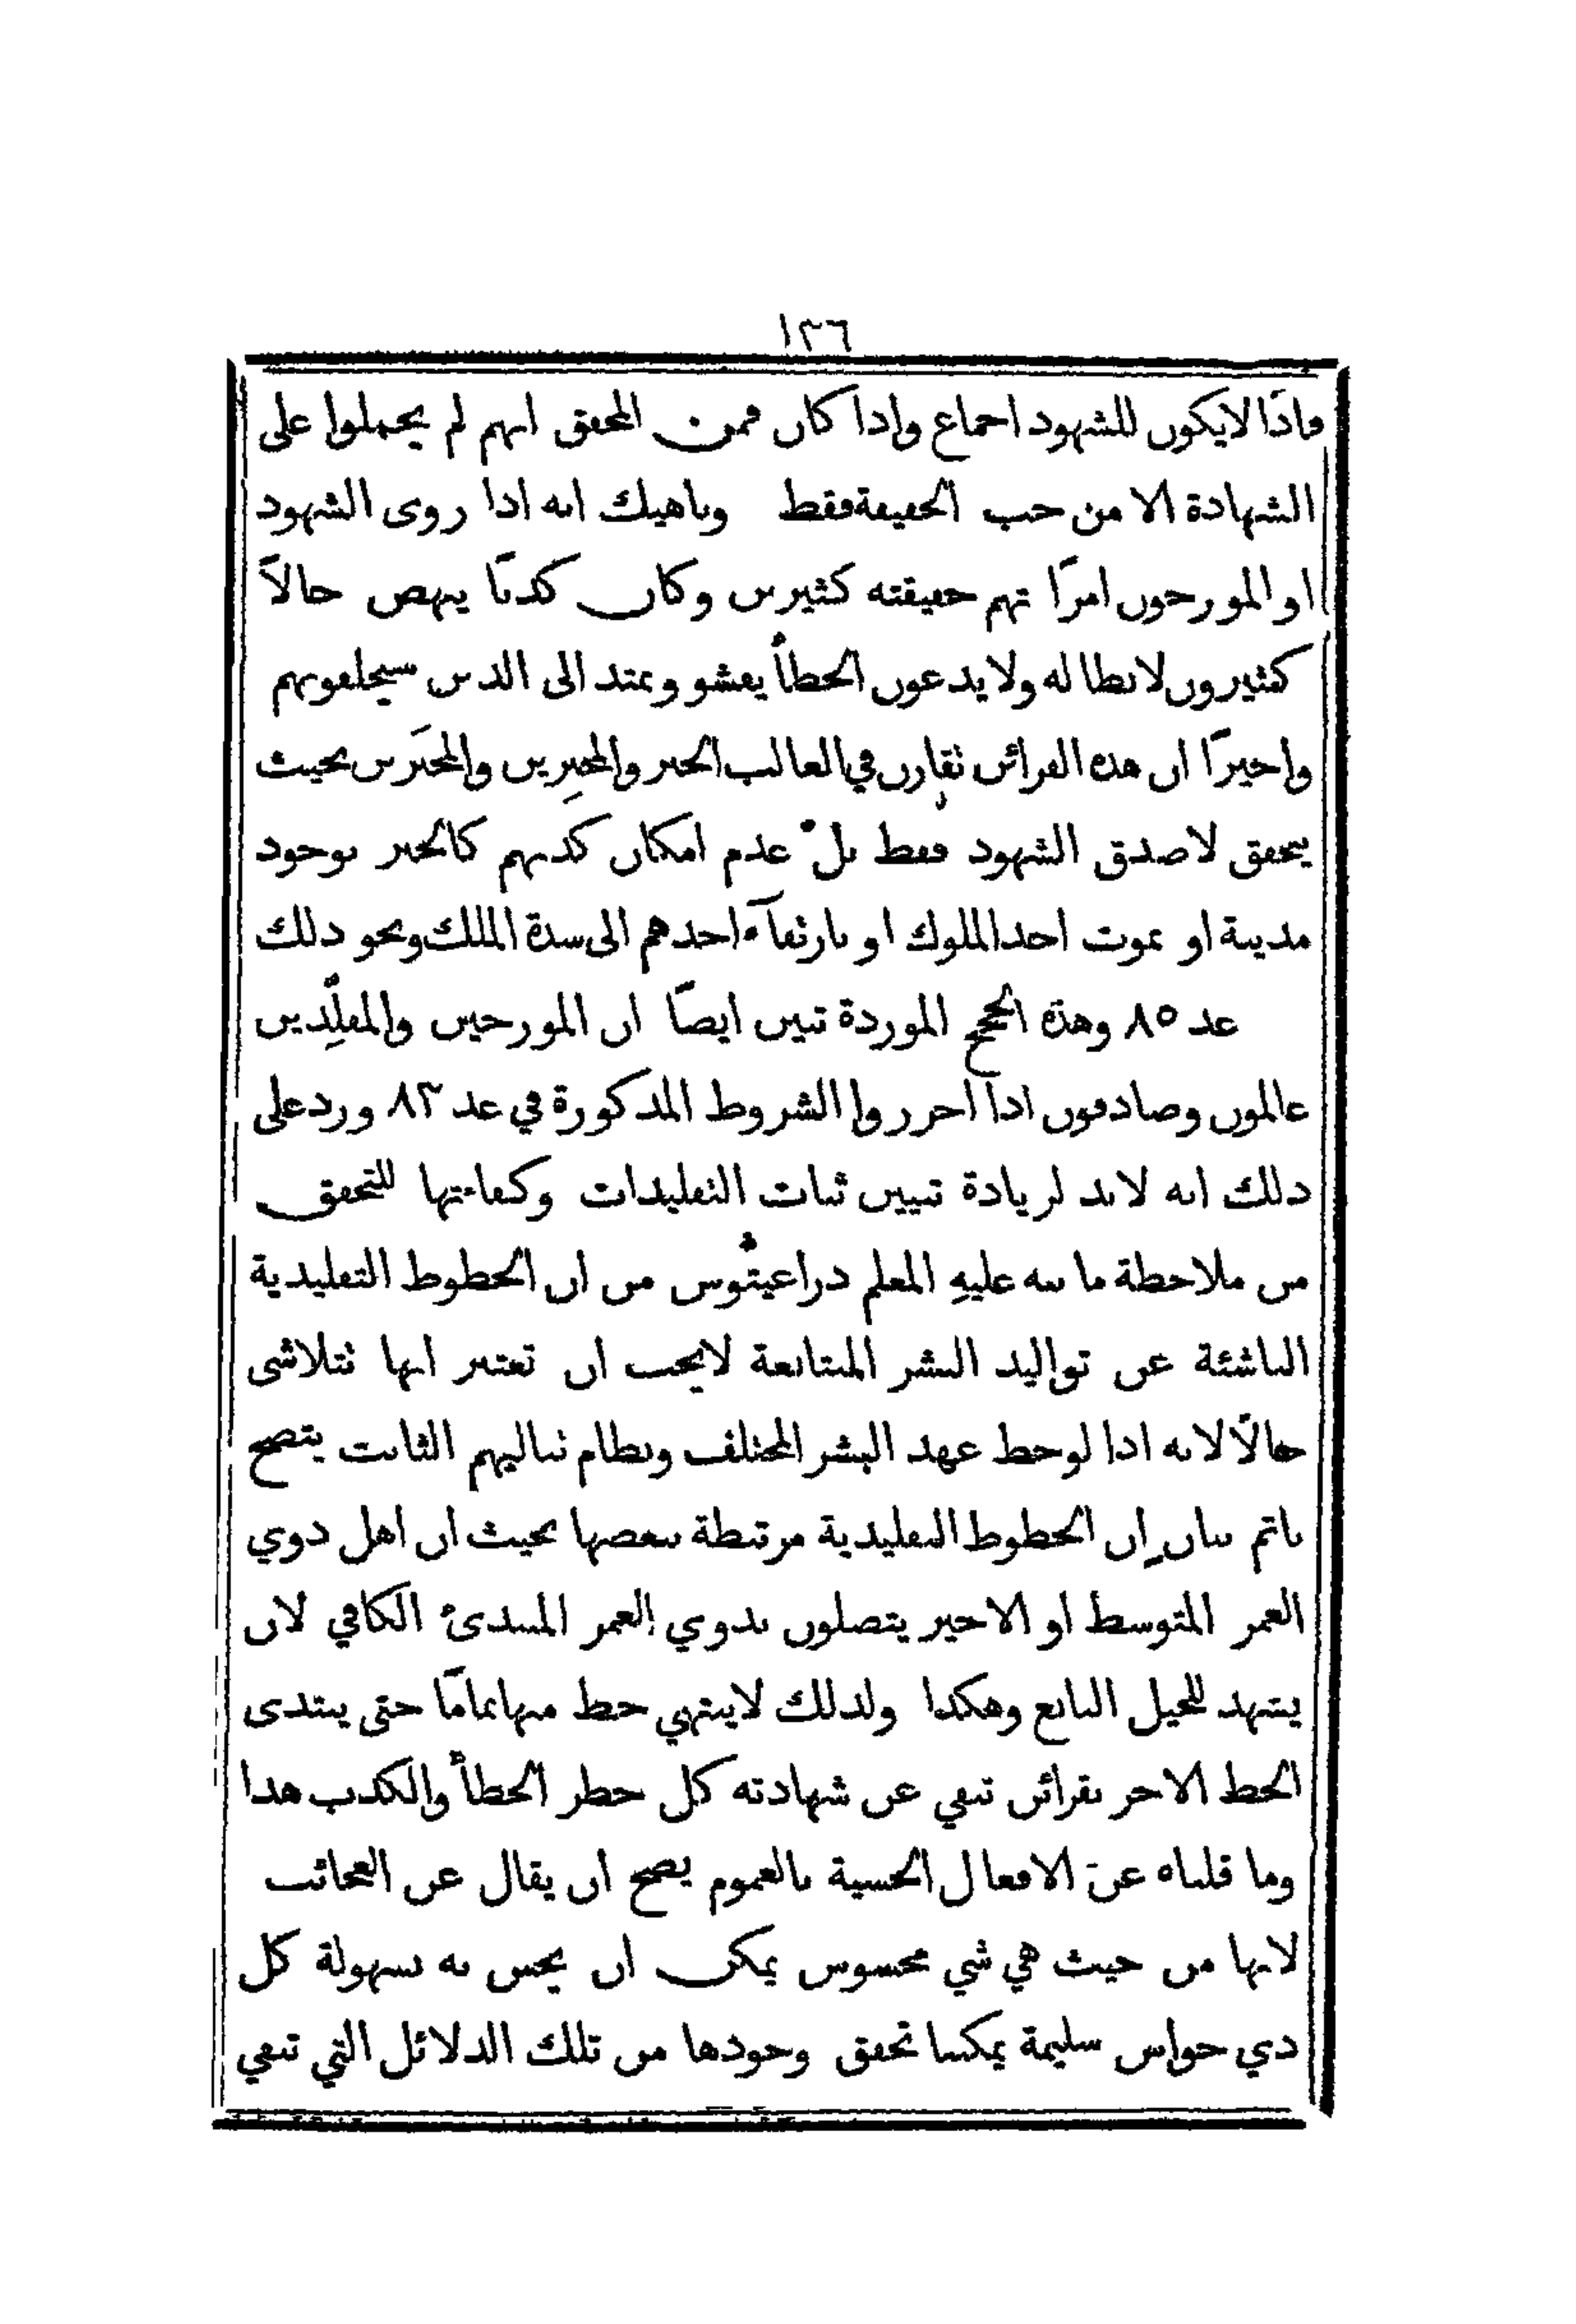 ١٣٦
فاذًا لا يكون للشهود اجماع واذا كان فمن المحقق انهم لم يحملوا على
الشهادة الا من حب الحقيقة فقط وناهيك انه اذا روى الشهود
او المورخون امرًا تهم حقيقته كثيرين وكان كذبًا ينهض حالاً
كثيرون لابطاله ولا يدعون الخطأ يفشو ويمتد الى الذين سيخلفونهم
واخيرًا ان هذه القرائن تقارن في الغالب الخبر والمخبِرين والمخبَرين بحيث
يتحقق لا صدق الشهود فقط بل عدم امكان كذبهم كالخبر بوجود
مدينة او بموت احد الملوك او بارتقآء احدهم الى سدة الملك ونحو ذلك
عد ٨٥ وهذه الحجج الموردة تبين ايضًا ان المورخين والمقلِّدين
عالمون وصادقون اذا احرزوا الشروط المذكورة في عد ٨٣ وزد على
ذلك انه لا بد لزيادة تبيين ثبات التقليدات وكفايتها للتحقق
من ملاحظة ما نبه عليهِ المعلم دراغيتوس من ان الخطوط التقليدية
الناشئة عن تواليد البشر المتتابعة لا يجب ان تعتبر انها تتلاشى
حالاً لانه اذا لوحظ عهد البشر المختلف ونظام تتاليهم الثابت يتضح
باتم بيان ان الخطوط التقليدية مرتبطة ببعضها بحيث ان اهل ذوي
العمر المتوسط او الاخير يتصلون بذوي العمر المبتدئ الكافي لان
يشهد للجيل التابع وهكذا ولذلك لا ينتهي خط منها تمامًا حتى يبتدى
الخط الاخر بقرائن تنفي عن شهادته كل خطر الخطأ والكذب هذا
وما قلناه عن الافعال الحسية بالعموم يصح ان يقال عن العجائب
لانها من حيث هي شي محسوس يمكن ان يحس به بسهولة كل
ذي حواس سليمة يمكننا تحقق وجودها من تلك الدلائل التي تنفي